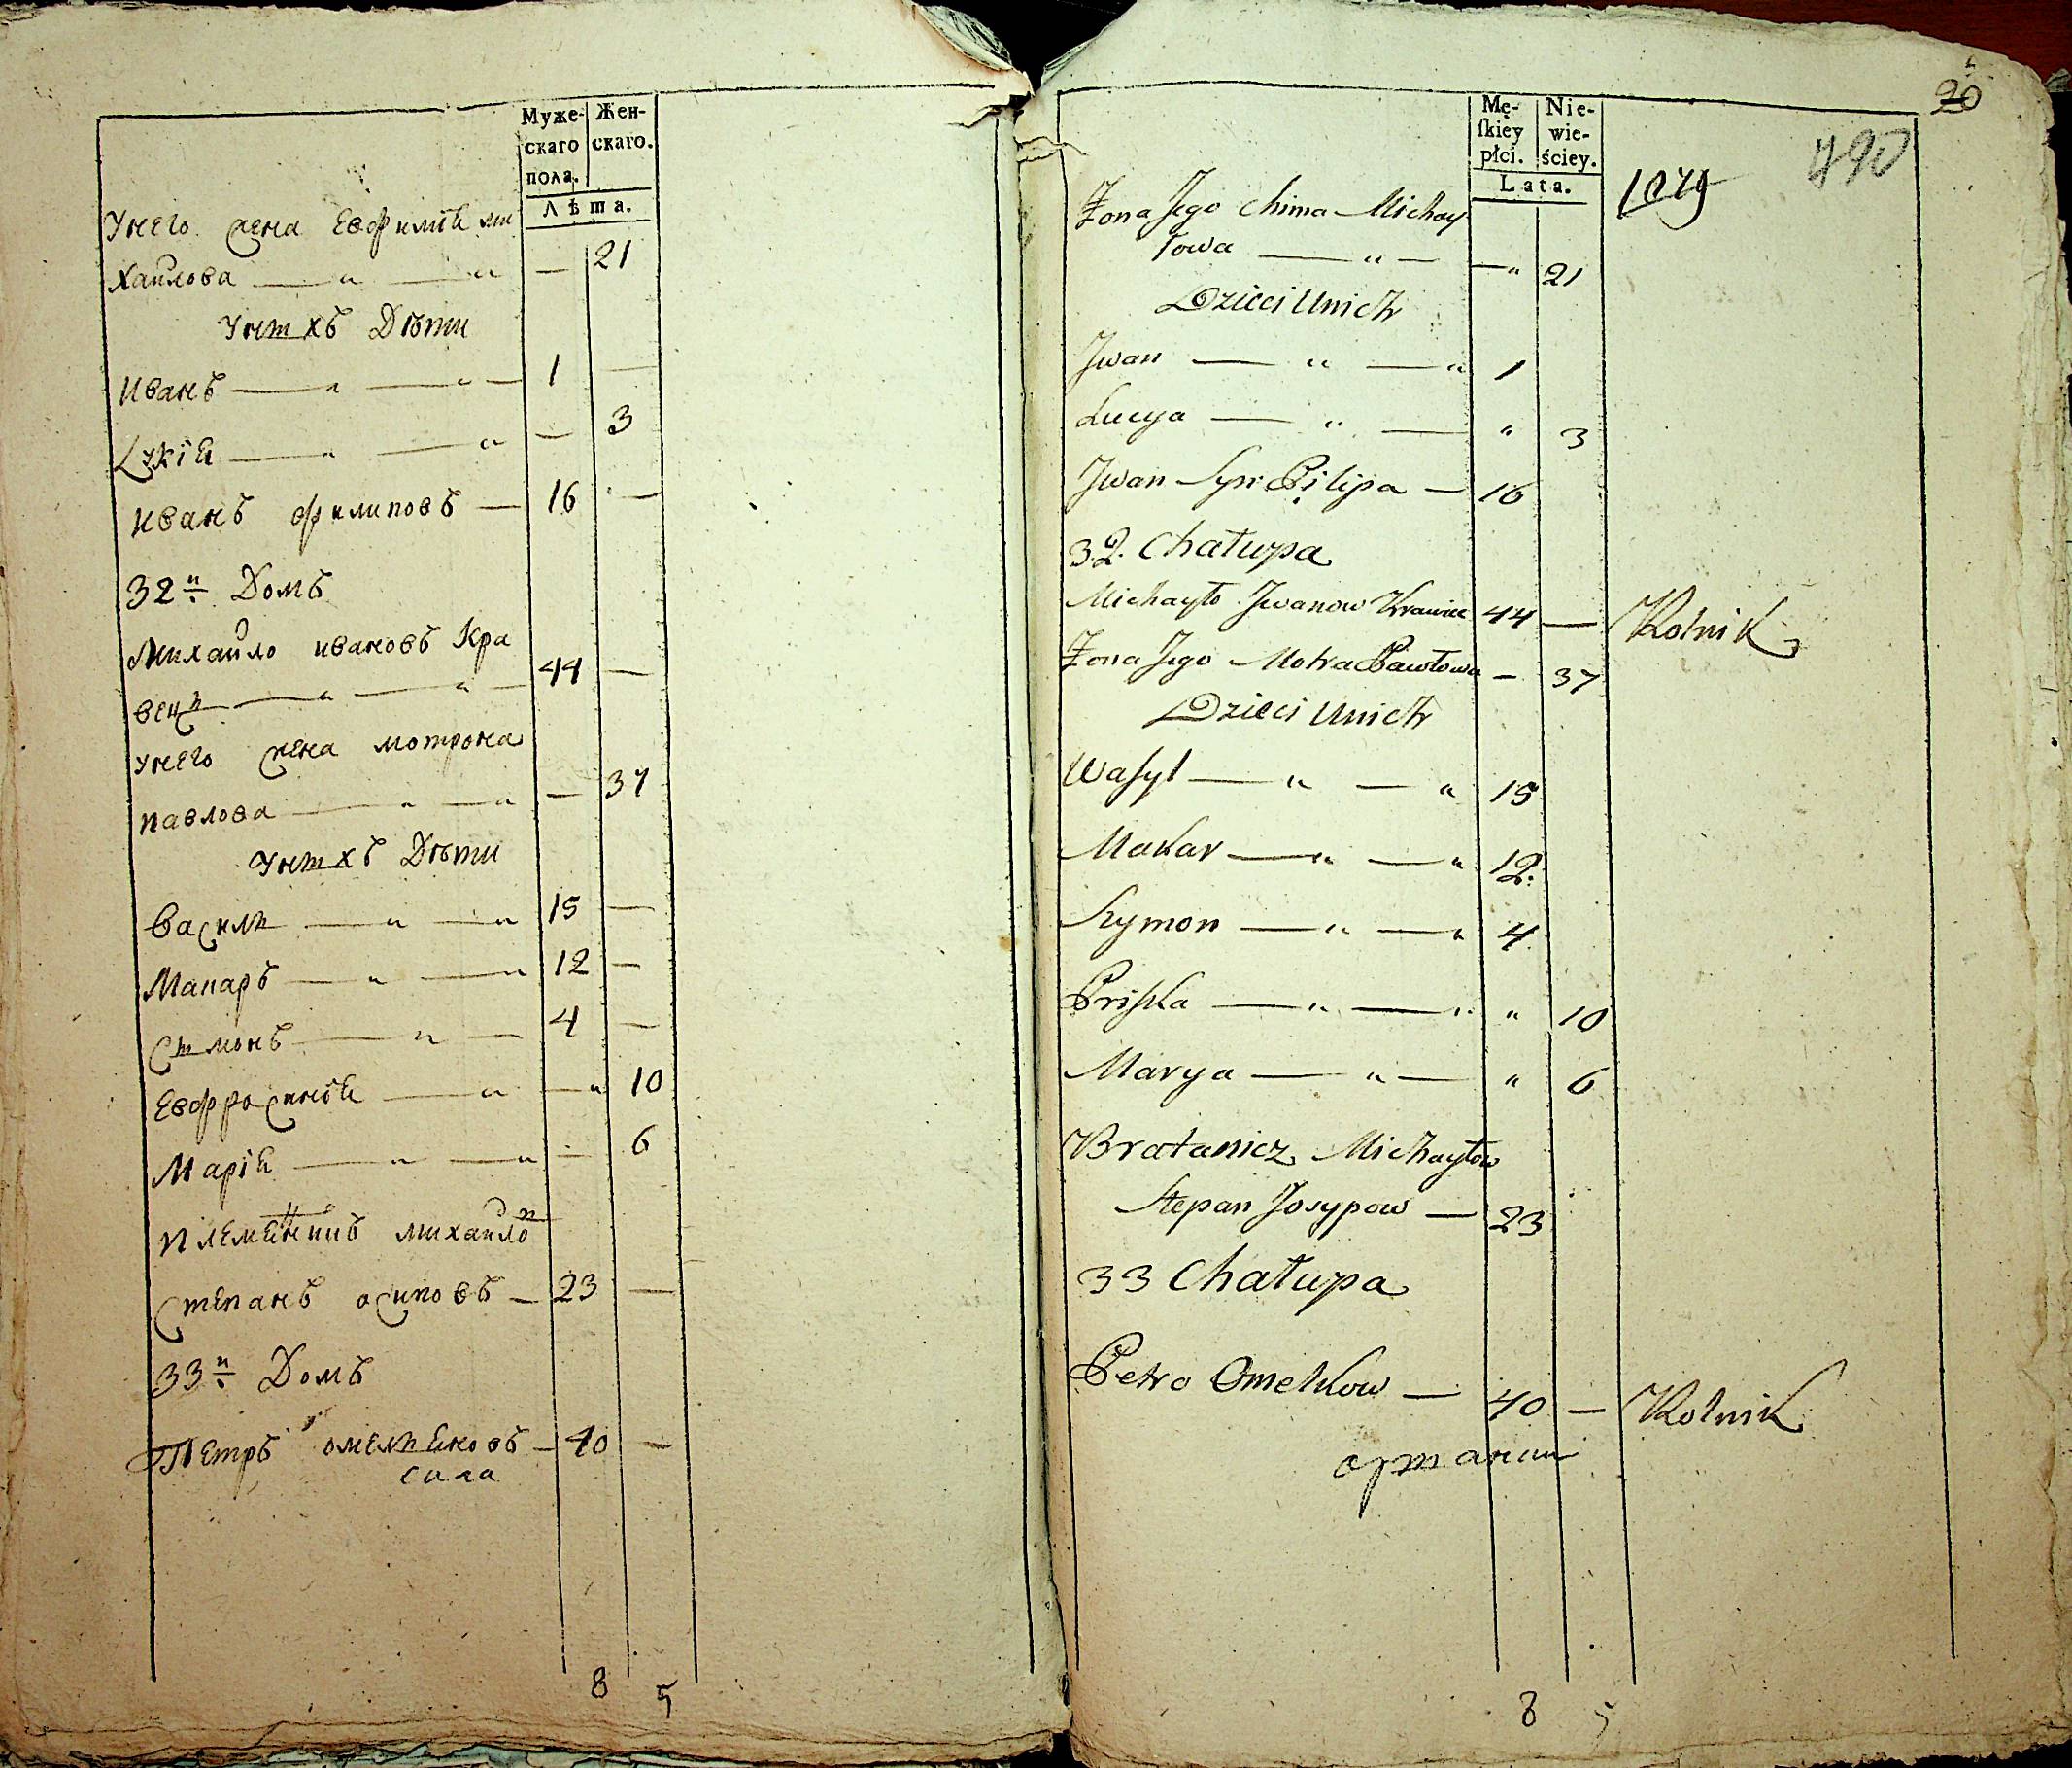 Муже-
скаго
пола.
Жен-
скаго.
Лѣта.
Унего жена Евфимія ми
хайлова — „ — „ — 21
Унихъ Дѣти
Иванъ — „ — „ — 1 —
Лукія — „ — „ — 3
Иванъ филиповъ — 16 —
32й Домъ
Михайло ивановъ Кра
вець — „ — „ — 44 —
Унего жена мотрона
павлова — „ — „ — 37
Унихъ Дѣти
Василь — „ — „ 15 —
Макаръ — „ — „ 12 —
Симонъ — „ — 4 —
Евфросинія — „ — „ 10
Марія — „ — „ — 6
Племеникъ михайло
Степанъ осиповъ — 23 —
33й Домъ
Петръ омельяновъ — 40 —
сила
8 5
20
490
Mę-
ſkiey
płci.
Nie-
wie-
ściey.
Lata.
1079
Żona Jego Chima Michay
łowa — „ — — „ 21
Dzieci Unich
Jwan — „ — „ 1
Lucya — „ — „ 3
Jwan Syn Pilipa — 16
32. Chałupa
Michayło Jwanow Krawiec 44 — Rolnik
Żona Jego Motra Pawłowa — 37
Dzieci Unich
Waſyl — „ — „ 15
Makar — „ — „ 12.
Szymon — „ — „ 4
Priſka — „ — „ „ 10
Marya — „ — „ 6
Bratanicz Michayłow
Stepan Josypow — 23
33 Chałupa
Petro Omelkow — 40 — Rolnik
8 5